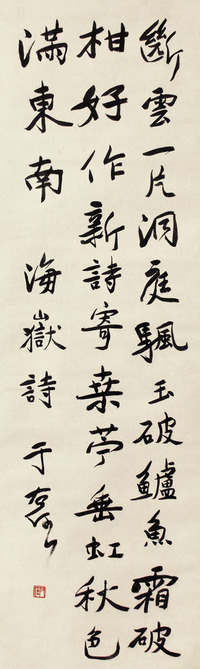 斷雲一片洞庭颿玉破鱸魚霜破
柑好作新詩寄桒苧垂虹秋色
滿東南 海嶽詩 于